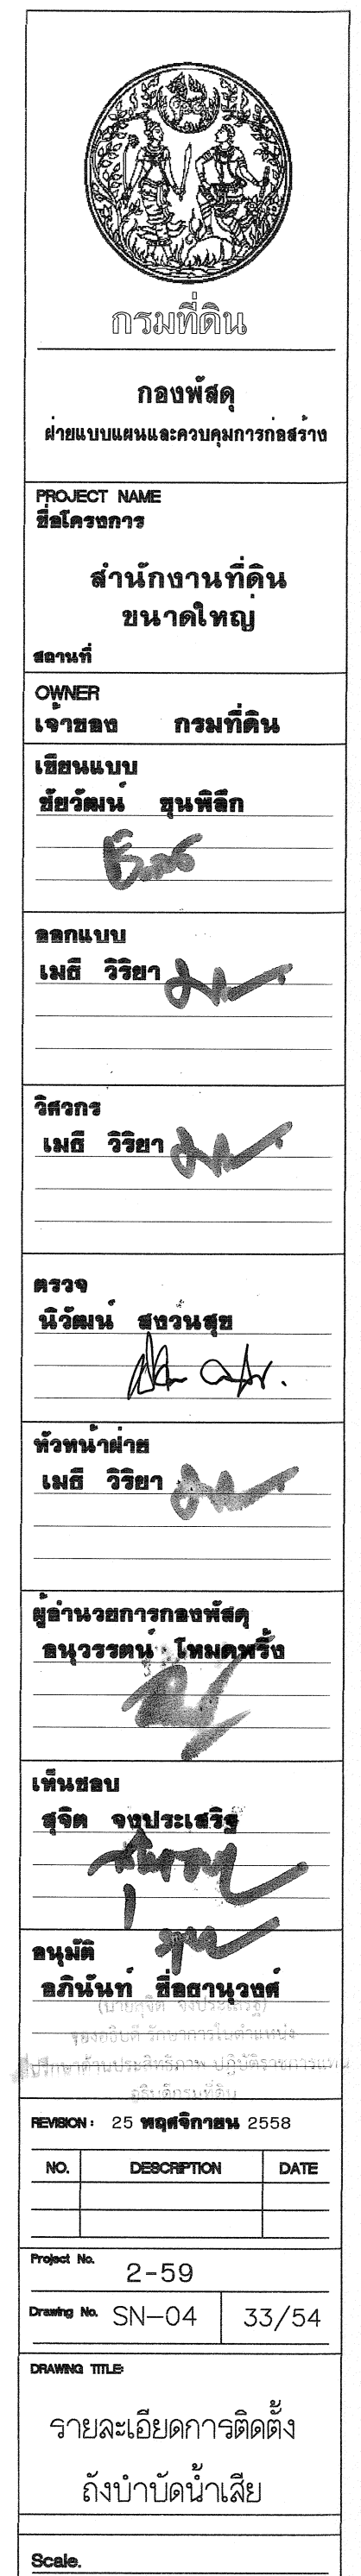 กรมที่ดิน
กองพัสดุ
ฝ่ายแบบแผนและควบคุมการก่อสร้าง
PROJECT NAME
ชื่อโครงการ
สำนักงานที่ดิน
ขนาดใหญ่
สถานที่
OWNER
เจ้าของ กรมที่ดิน
เขียนแบบ
ชัยวัฒน์ ขุนพิลึก
ออกแบบ
เมธี วิริยา
วิศวกร
เมธี วิริยา
ตรวจ
นิวัฒน์ สงวนสุข
หัวหน้าฝ่าย
เมธี วิริยา
ผู้อำนวยการกองพัสดุ
อนุวรรตน์ โหมดพริ้ง
เห็นชอบ
สุจิต จงประเสริฐ
อนุมัติ
อภินันท์ ซื่อธานุวงศ์
(นายสุจิต จงประเสริฐ)
รองอธิบดี รักษาการในตำแหน่ง
ที่ปรึกษาด้านประสิทธิภาพ ปฏิบัติราชการแทน
อธิบดีกรมที่ดิน
REVISION : 25 พฤศจิกายน 2558
NO. DESCRIPTION DATE
Project No. 2-59
Drawing No. SN-04 33/54
DRAWING TITLE:
รายละเอียดการติดตั้ง
ถังบำบัดน้ำเสีย
Scale.